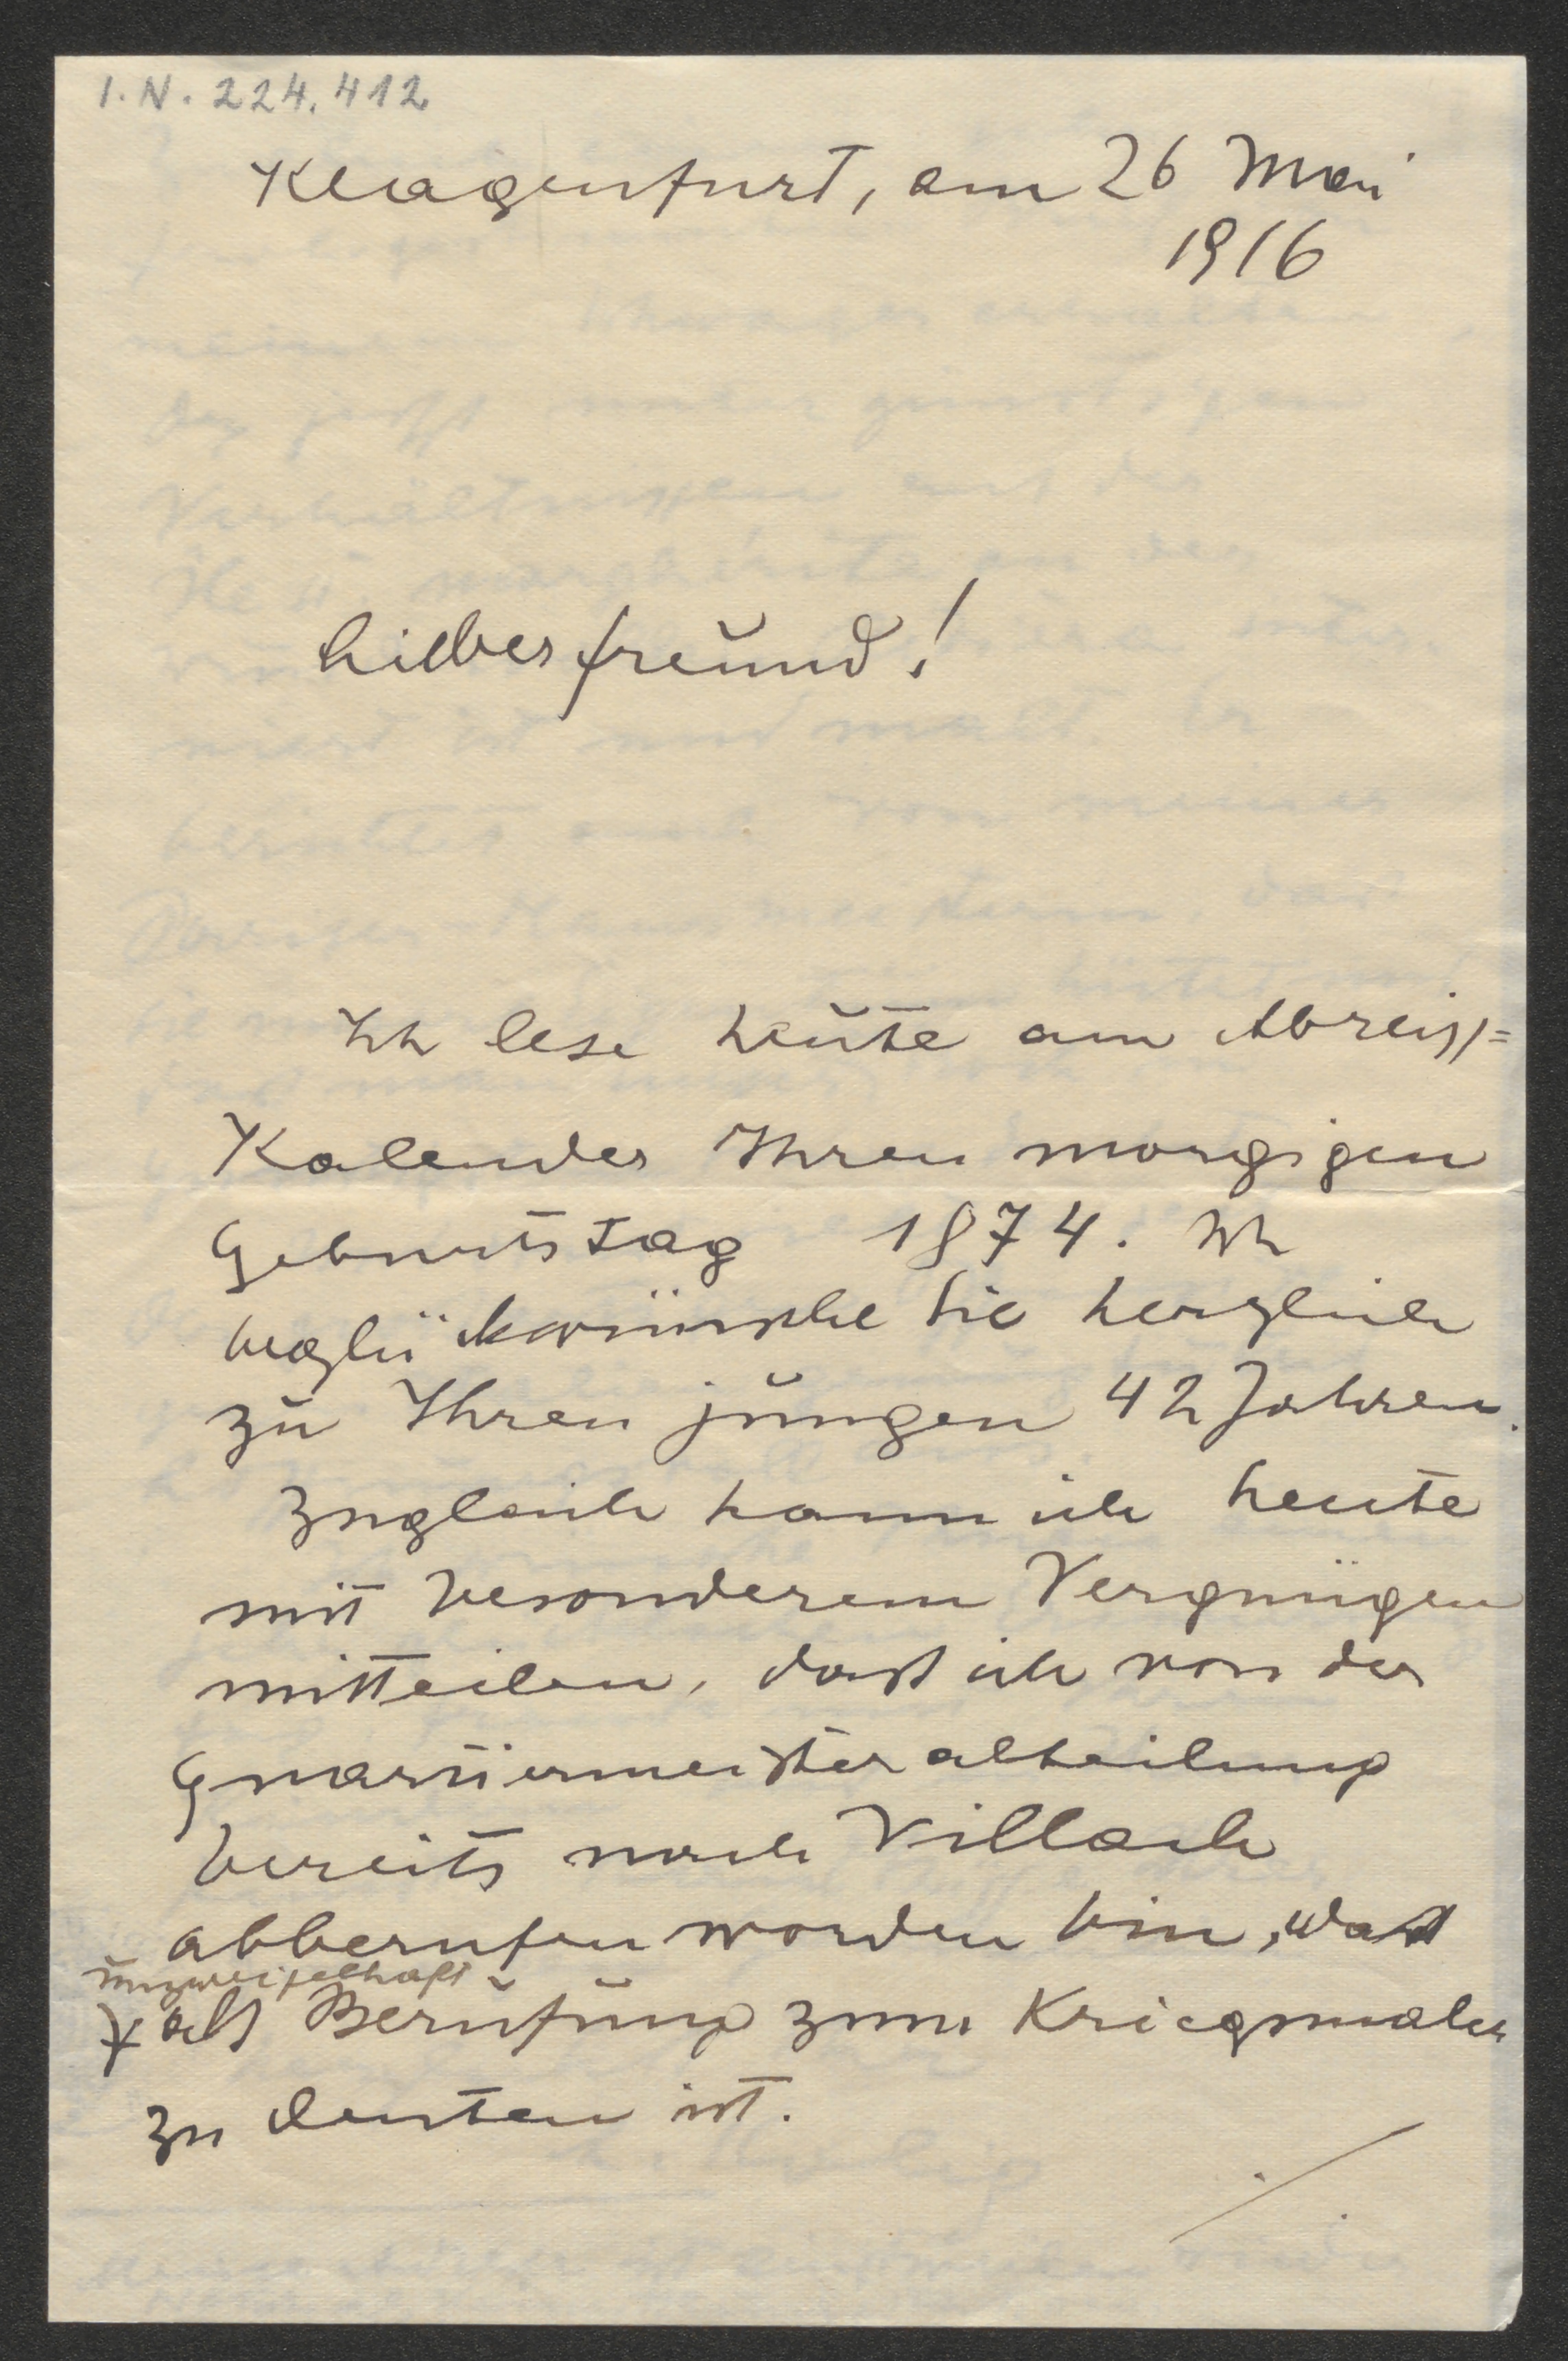 I. N. 224.412
Klagenfurt, am 26 Mai
1916
Lieber Freund!
Ich lese heute am Abreiss=
Kalender Ihren morgigen
Geburtstag 1874. Ich
beglückwünsche Sie herzlich
zu Ihren jungen 42 Jahren.
Zugleich kann ich heute
mit besonderem Vergnügen
mitteilen, dass ich von der
Quartiermeisterabteilung
bereits nach Villach
abberufen worden bin, was
unzweifelhaft
als Berufung zum Kriegsmaler
zu deuten ist.
./.